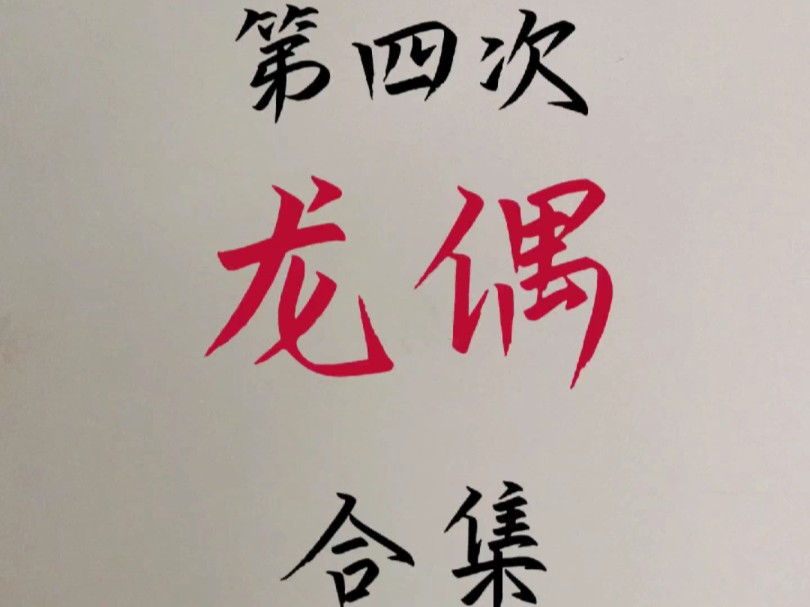 第四次
龙偶
合集